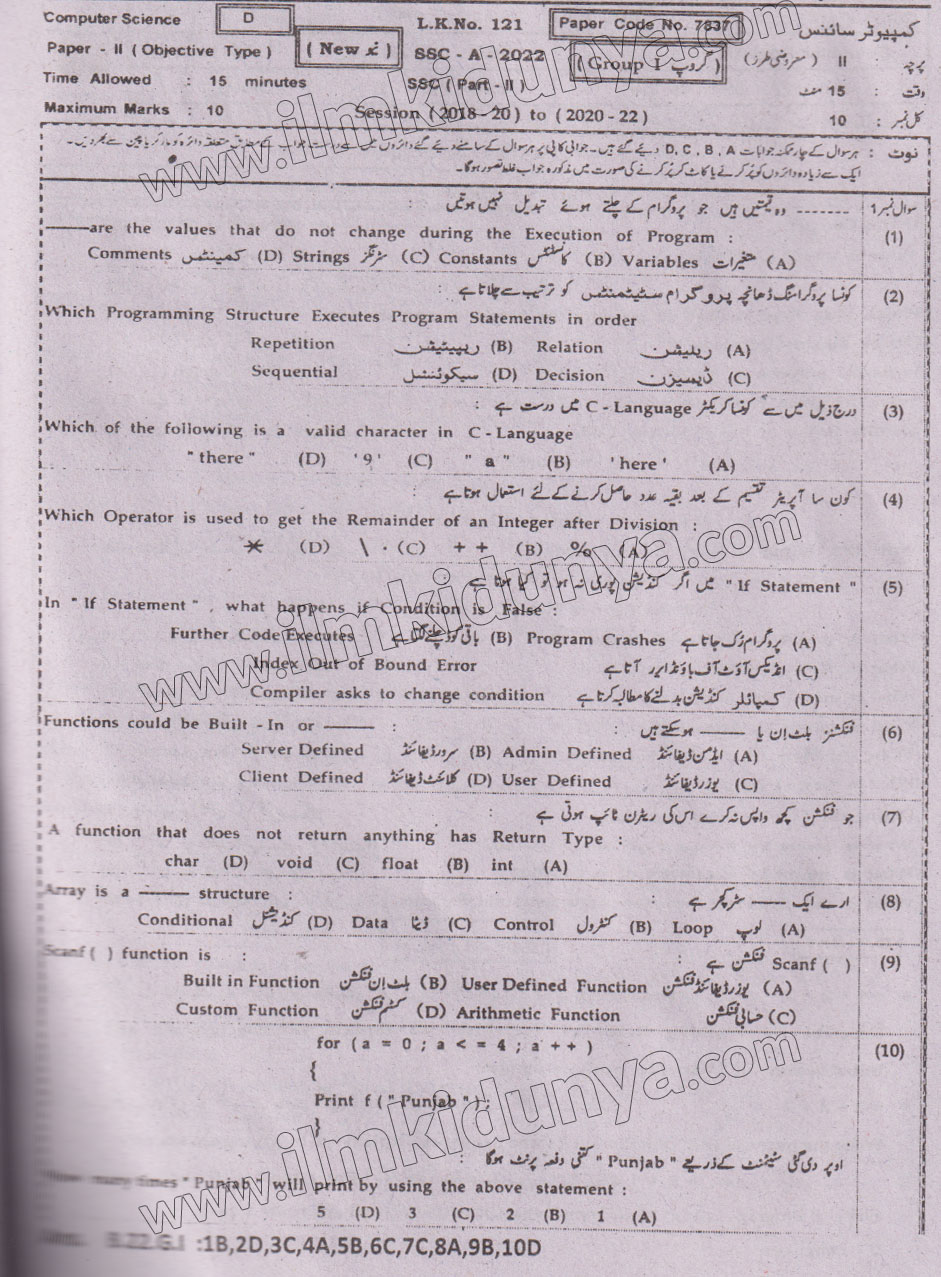 Computer Science D L.K.No. 121 Paper Code No. 7837 کمپیوٹر سائنس
Paper - II ( Objective Type ) ( New نیو ) SSC - A - 2022 ( Group I گروپ ) پرچہ : II ( معروضی طرز )
Time Allowed : 15 minutes SSC ( Part - II ) وقت : 15 منٹ
Maximum Marks : 10 Session ( 2018 - 20 ) to ( 2020 - 22 ) کل نمبر : 10
نوٹ : ہر سوال کے چار ممکنہ جوابات D , C , B , A دیئے گئے ہیں۔ جوابی کاپی پر ہر سوال کے سامنے دیئے گئے دائروں میں سے درست جواب کے مطابق متعلقہ دائرہ کو مارکر یا پین سے بھر دیں۔
ایک سے زیادہ دائروں کو پُر کرنے یا کاٹ کر پُر کرنے کی صورت میں مذکورہ جواب غلط تصور ہوگا۔
سوال نمبر 1 ------- وہ قیمتیں ہیں جو پروگرام کے چلتے ہوئے تبدیل نہیں ہوتیں :
(1) ———are the values that do not change during the Execution of Program :
Comments کمینٹس (D) Strings سٹرنگز (C) Constants کانسٹنٹس (B) Variables متغیرات (A)
(2) کونسا پروگرامنگ ڈھانچہ پروگرام سٹیٹمنٹس کو ترتیب سے چلاتا ہے :
Which Programming Structure Executes Program Statements in order
Repetition ریپیٹیشن (B) Relation ریلیشن (A)
Sequential سیکوئنشل (D) Decision ڈیسیزن (C)
(3) درج ذیل میں سے کونسا کریکٹر C - Language میں درست ہے :
Which of the following is a valid character in C - Language
" there " (D) ' 9 ' (C) " a " (B) ' here ' (A)
(4) کون سا آپریٹر تقسیم کے بعد بقیہ عدد حاصل کرنے کے لئے استعمال ہوتا ہے
Which Operator is used to get the Remainder of an Integer after Division :
* (D) \ (C) + + (B) % (A)
(5) " If Statement " میں اگر کنڈیشن پوری نہ ہو تو کیا ہوتا ہے :
In " If Statement " , what happens if Condition is False :
Further Code Executes باقی کوڈ چلنے لگتا ہے (B) Program Crashes پروگرام رُک جاتا ہے (A)
Index Out of Bound Error انڈیکس آؤٹ آف باؤنڈ ایرر آتا ہے (C)
Compiler asks to change condition کمپائلر کنڈیشن بدلنے کا مطالبہ کرتا ہے (D)
Functions could be Built - In or ——— : فنکشنز بلٹ اِن یا ——— ہو سکتے ہیں : (6)
Server Defined سرور ڈیفائنڈ (B) Admin Defined ایڈمن ڈیفائنڈ (A)
Client Defined کلائنٹ ڈیفائنڈ (D) User Defined یوزر ڈیفائنڈ (C)
(7) جو فنکشن کچھ واپس نہ کرے اس کی ریٹرن ٹائپ ہوتی ہے :
A function that does not return anything has Return Type :
char (D) void (C) float (B) int (A)
Array is a ——— structure : ارے ایک ——— سٹرکچر ہے : (8)
Conditional کنڈیشنل (D) Data ڈیٹا (C) Control کنٹرول (B) Loop لوپ (A)
Scanf ( ) function is : Scanf ( ) فنکشن ہے : (9)
Built in Function بلٹ اِن فنکشن (B) User Defined Function یوزر ڈیفائنڈ فنکشن (A)
Custom Function کسٹم فنکشن (D) Arithmetic Function حسابی فنکشن (C)
for ( a = 0 ; a < = 4 ; a + + ) (10)
{
Print f ( " Punjab " ) ;
}
اوپر دی گئی سٹیٹمنٹ کے ذریعے " Punjab " کتنی دفعہ پرنٹ ہوگا :
How many times " Punjab " will print by using the above statement :
5 (D) 3 (C) 2 (B) 1 (A)
B.22.G.I :1B,2D,3C,4A,5B,6C,7C,8A,9B,10D
www.ilmkidunya.com
www.ilmkidunya.com
www.ilmkidunya.com